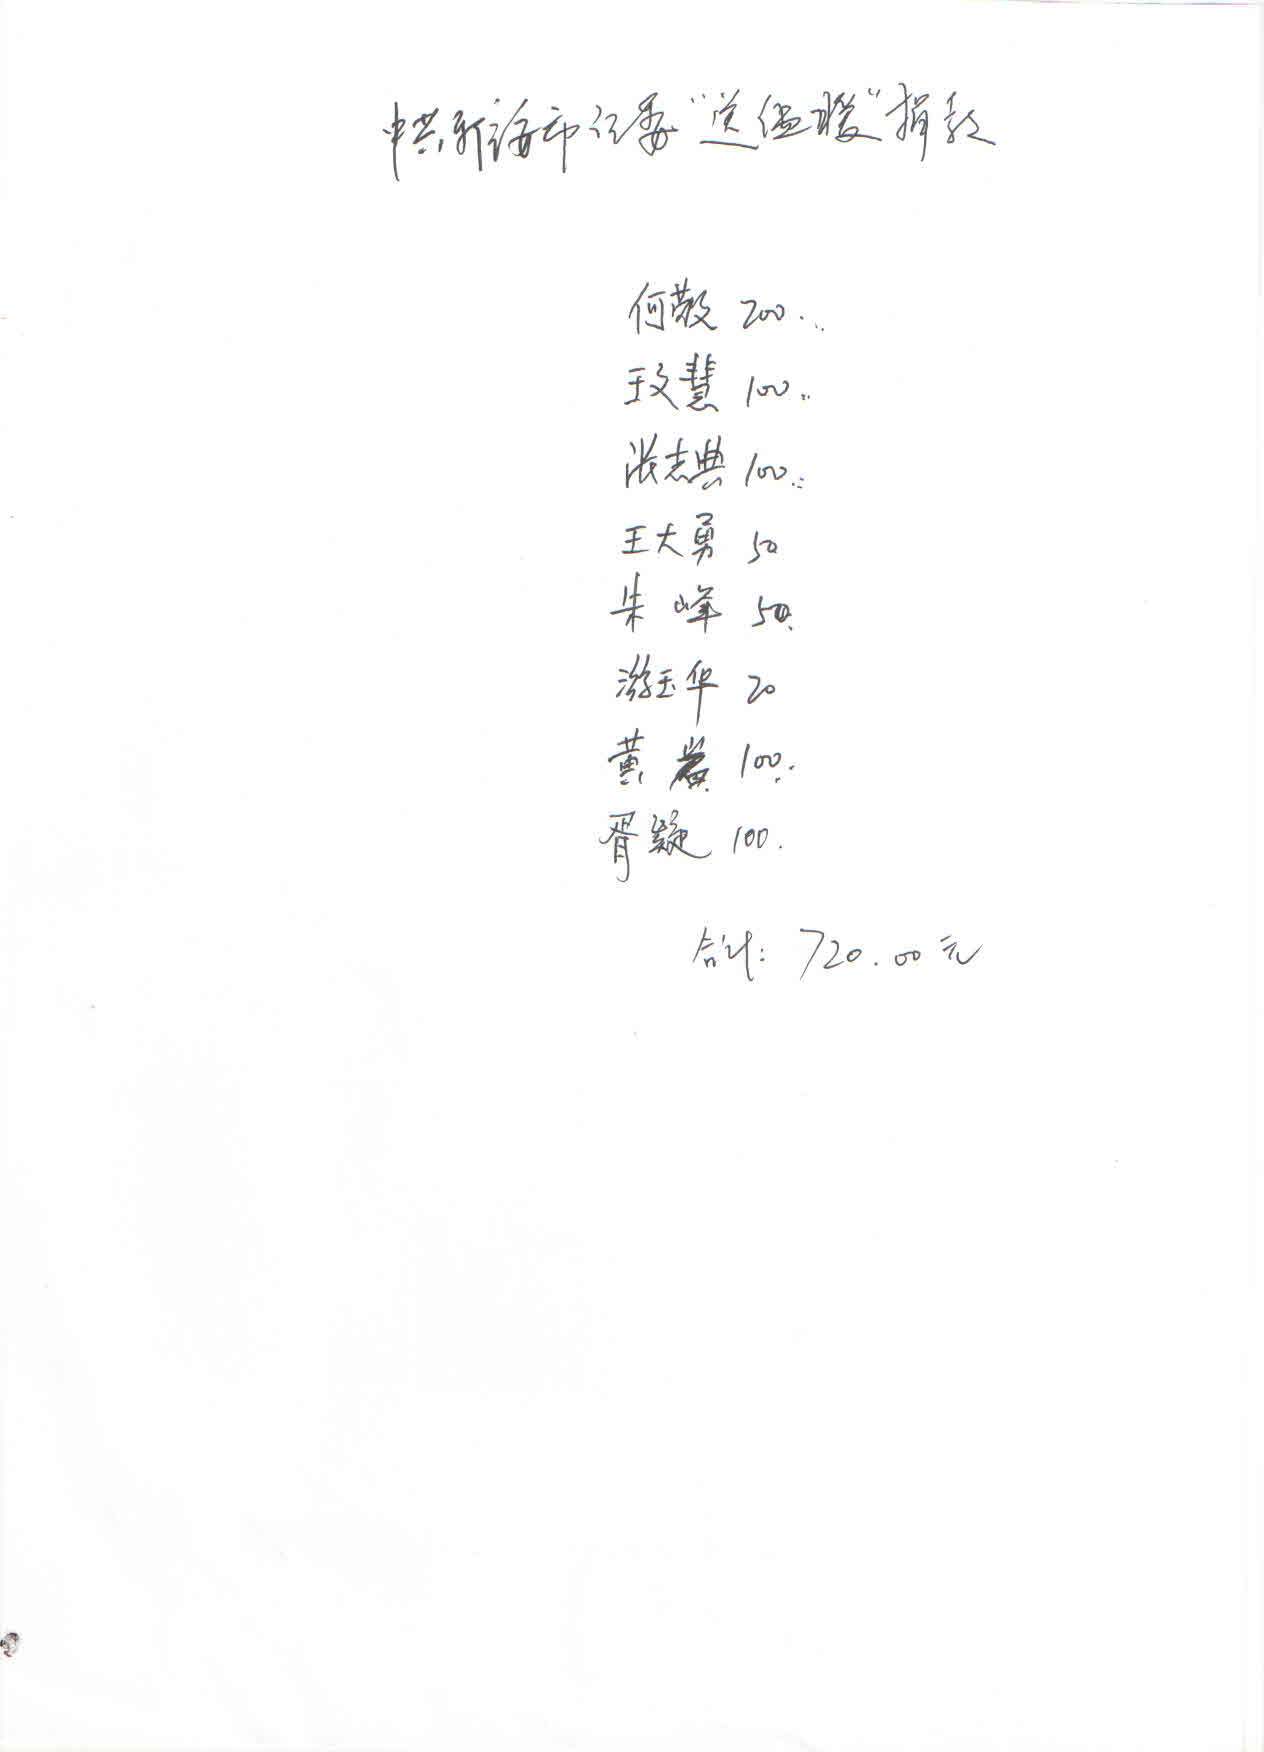 中共新沂市纪委“送温暖”捐款
何敬 200.
王文慧 100.
张志典 100.
王大勇 50
朱峰 50.
游玉华 20
黄 100.
胥凝 100.
合计: 720.00元